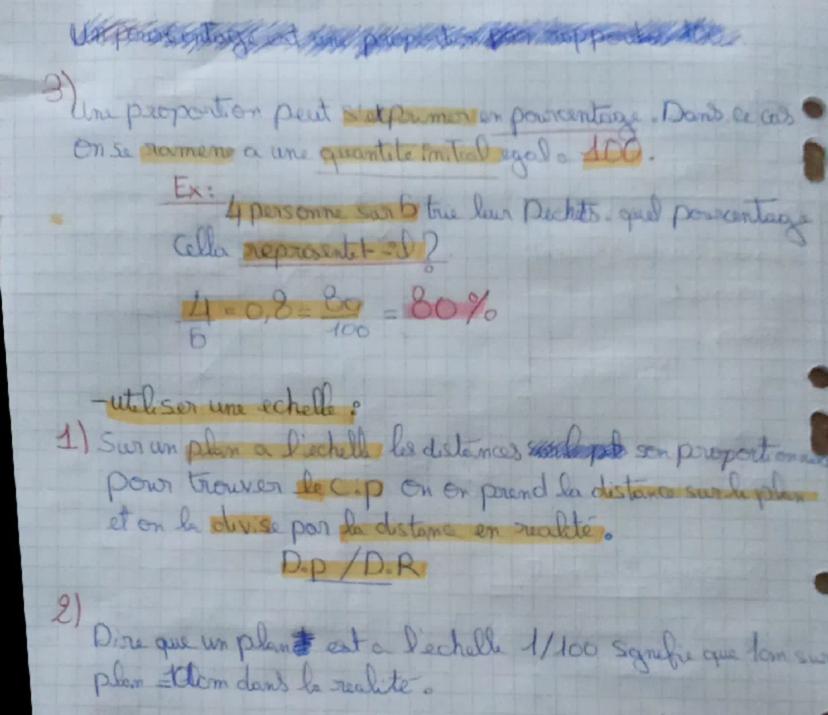 3)
Une proportion peut s'exprimer en pourcentage. Dans ce cas
on se ramene a une quantite initial egal a 100.
Ex:
4 personne sur 5 trie leur Dechets. quel pourcentage
cella represente t-il ?
4/5 = 0,8 = 80/100 = 80%
-utiliser une echelle :
1) Sur un plan a l'echelle les distances son proportionne
pour trouver le C.p on en prend la distance sur le plan
et on la divise par la distance en realité.
D.p / D.R
2)
Dire que un plan est a l'echelle 1/100 signifie que 1cm sur
plan = cm dans la realité.